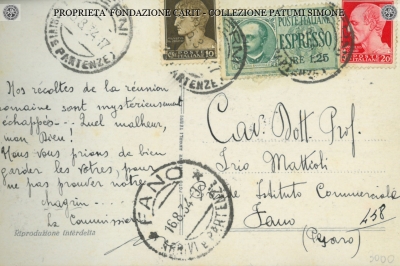 PROPRIETA' FONDAZIONE CARIT - COLLEZIONE PATUMI SIMONE
PARTENZE
POSTE ITALIANE
ESPRESSO
LIRE 1,25
10
20
Nos récoltes de la réunion
romaine sont mystérieusement
échappés--- Quel malheur,
mon Dieu!
Nous vous prions de bien
garder les vôtres, pour
ne pas prouver notre
chagrin---
La Commission
Riproduzione interdetta
FANO
16.8.34
ARRIVI E PARTENZE
Cav. Dott. Prof.
Trio Mattioli
Istituto Commerciale
Fano
(Pesaro)
458